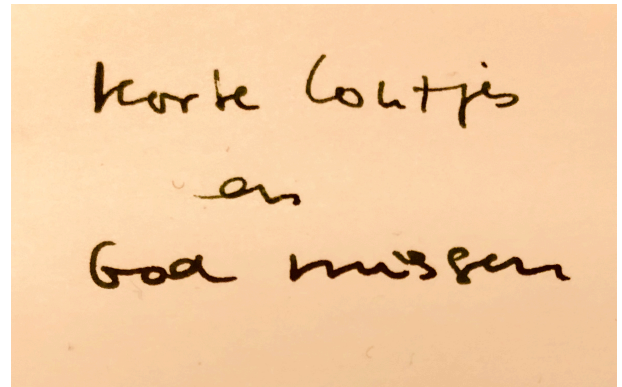 korte lontjes
en
God missen